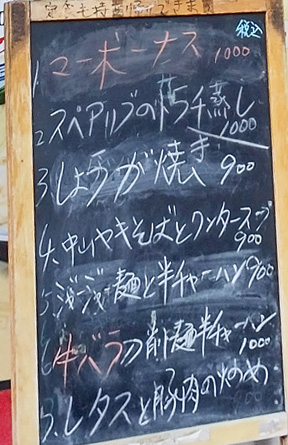 税込
1 マーボーナス 1000
2. スペアリブの豆チ蒸し 1000
3. しょうが焼き 900
4. 中山ヤキそばとワンタースープ 900
5. ジャージャー麺と半チャーハン 900
6. 牛バラの削麺半チャーハン 1000
7. レタスと豚肉の炒め